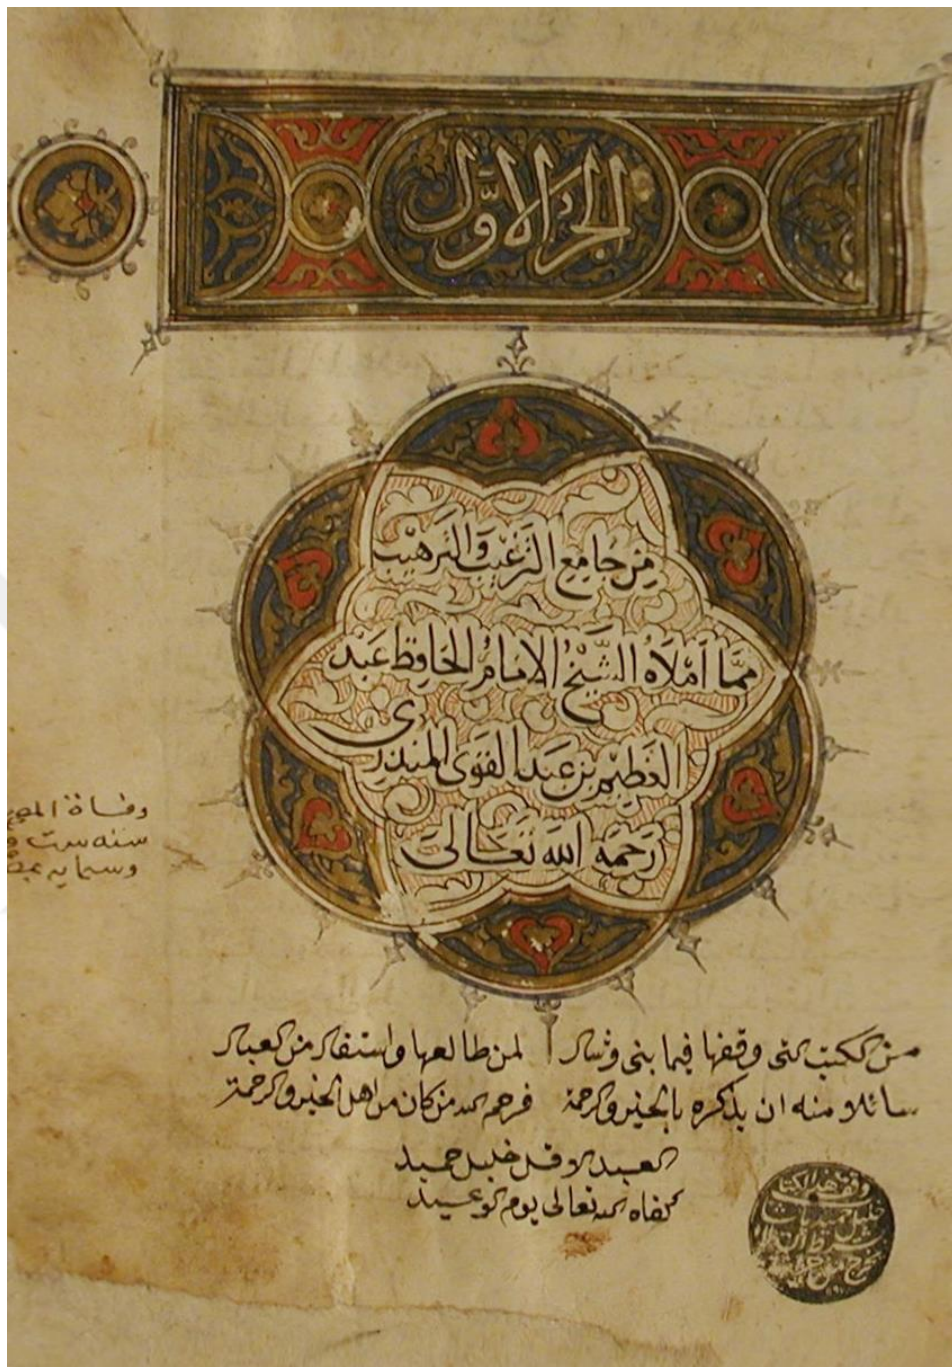 الجزء الاول
من جامع الترغيب والترهيب
مما أملاه الشيخ الامام الحافظ عبد
العظيم بن عبد القوى المنذري
رحمه الله تعالى
وفاة
سنه ست
من الكتب التى وقفها فيما بنى وشاد لمن طالعها واستفاد من العباد
سائلا منه ان يذكره بالخير والرحمة فرحم الله من كان من اهل الخير والرحمة
العبد الاقل خليل حميد
كفاه الله تعالى يوم الوعيد